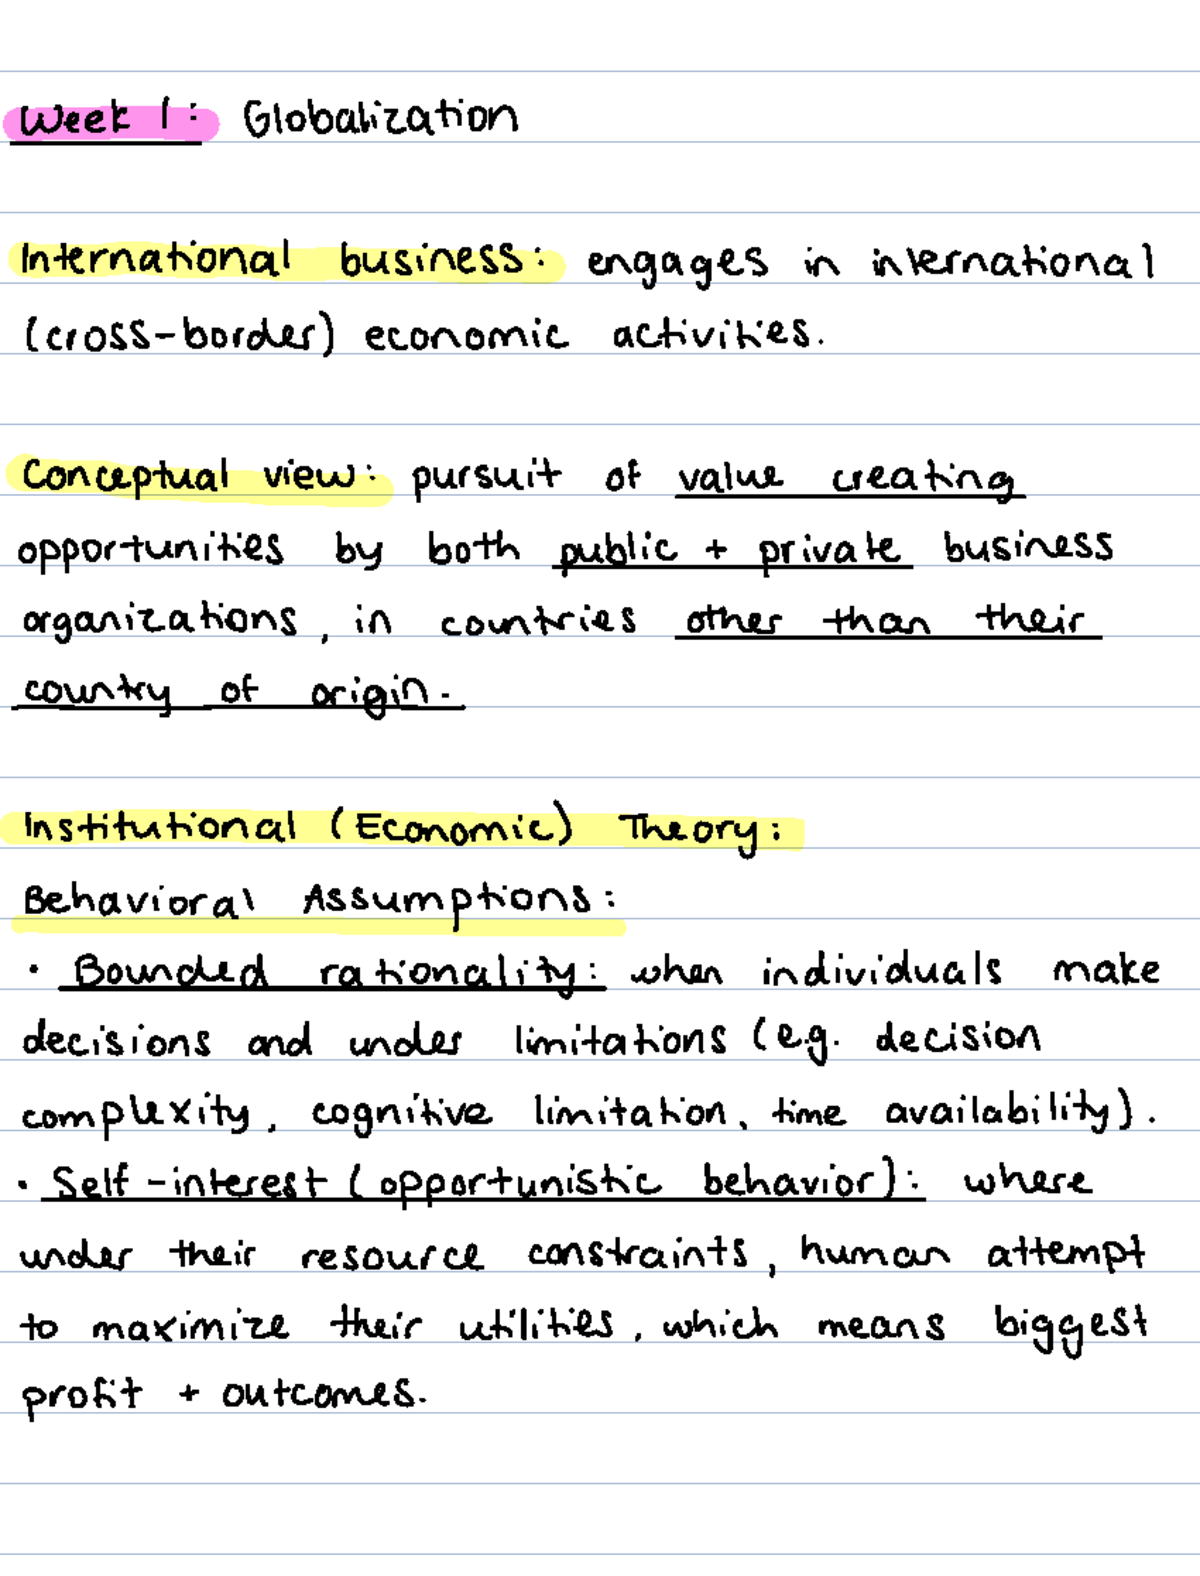 Week 1: Globalization
International business: engages in international
(cross-border) economic activities.
Conceptual view: pursuit of value creating
opportunities by both public + private business
organizations, in countries other than their
country of origin.
Institutional (Economic) Theory:
Behavioral Assumptions:
• Bounded rationality: when individuals make
decisions and under limitations (e.g. decision
complexity, cognitive limitation, time availability).
• Self-interest (opportunistic behavior): where
under their resource constraints, human attempt
to maximize their utilities, which means biggest
profit + outcomes.